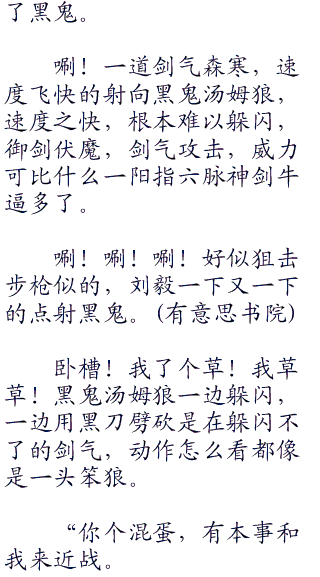 了黑鬼。
唰！一道剑气森寒，速
度飞快的射向黑鬼汤姆狼，
速度之快，根本难以躲闪，
御剑伏魔，剑气攻击，威力
可比什么一阳指六脉神剑牛
逼多了。
唰！唰！唰！好似狙击
步枪似的，刘毅一下又一下
的点射黑鬼。(有意思书院)
卧槽！我了个草！我草
草！黑鬼汤姆狼一边躲闪，
一边用黑刀劈砍是在躲闪不
了的剑气，动作怎么看都像
是一头笨狼。
“你个混蛋，有本事和
我来近战。